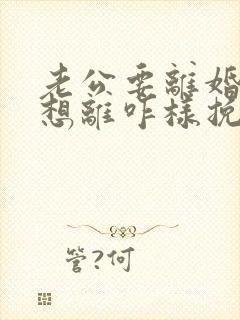 老公要離婚
想離咋樣挽
管?何